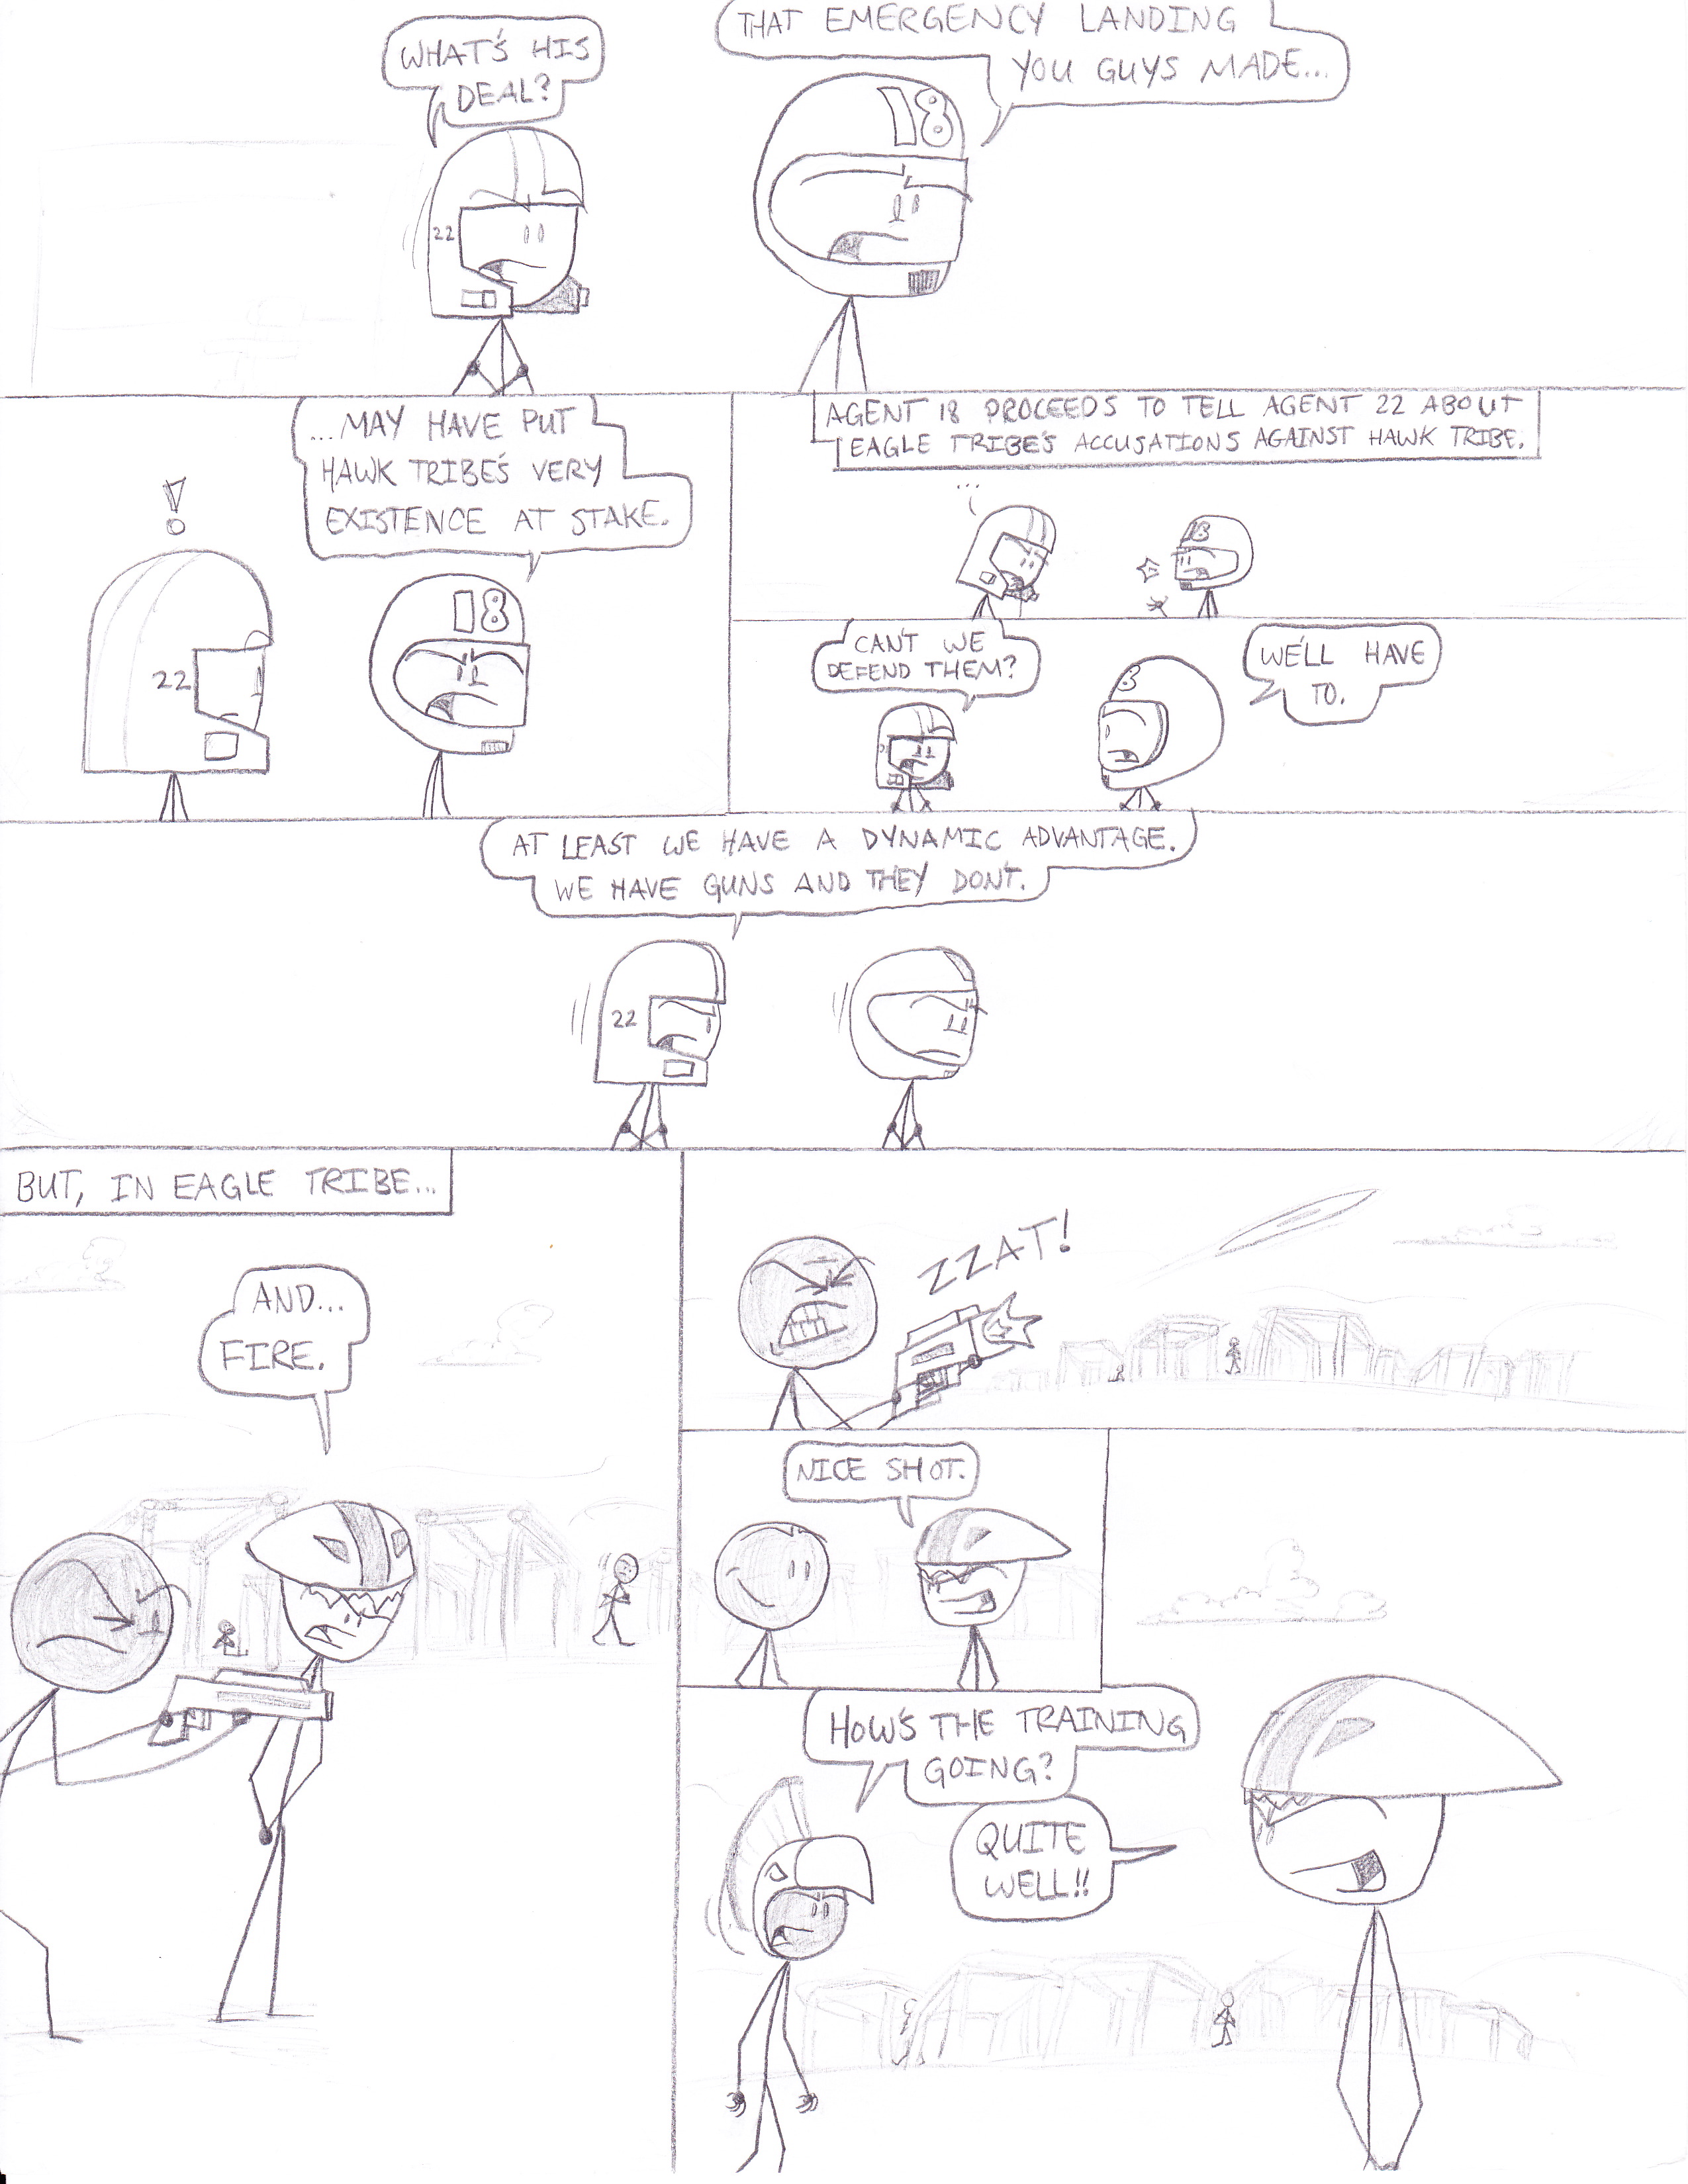 WHAT'S HIS
DEAL?
THAT EMERGENCY LANDING
YOU GUYS MADE...
18
22
...MAY HAVE PUT
HAWK TRIBE'S VERY
EXISTENCE AT STAKE.
!
22
18
AGENT 18 PROCEEDS TO TELL AGENT 22 ABOUT
EAGLE TRIBE'S ACCUSATIONS AGAINST HAWK TRIBE.
...
18
CAN'T WE
DEFEND THEM?
WE'LL HAVE
TO.
AT LEAST WE HAVE A DYNAMIC ADVANTAGE.
WE HAVE GUNS AND THEY DON'T.
22
BUT, IN EAGLE TRIBE...
AND...
FIRE.
ZZAT!
NICE SHOT.
HOW'S THE TRAINING
GOING?
QUITE
WELL!!